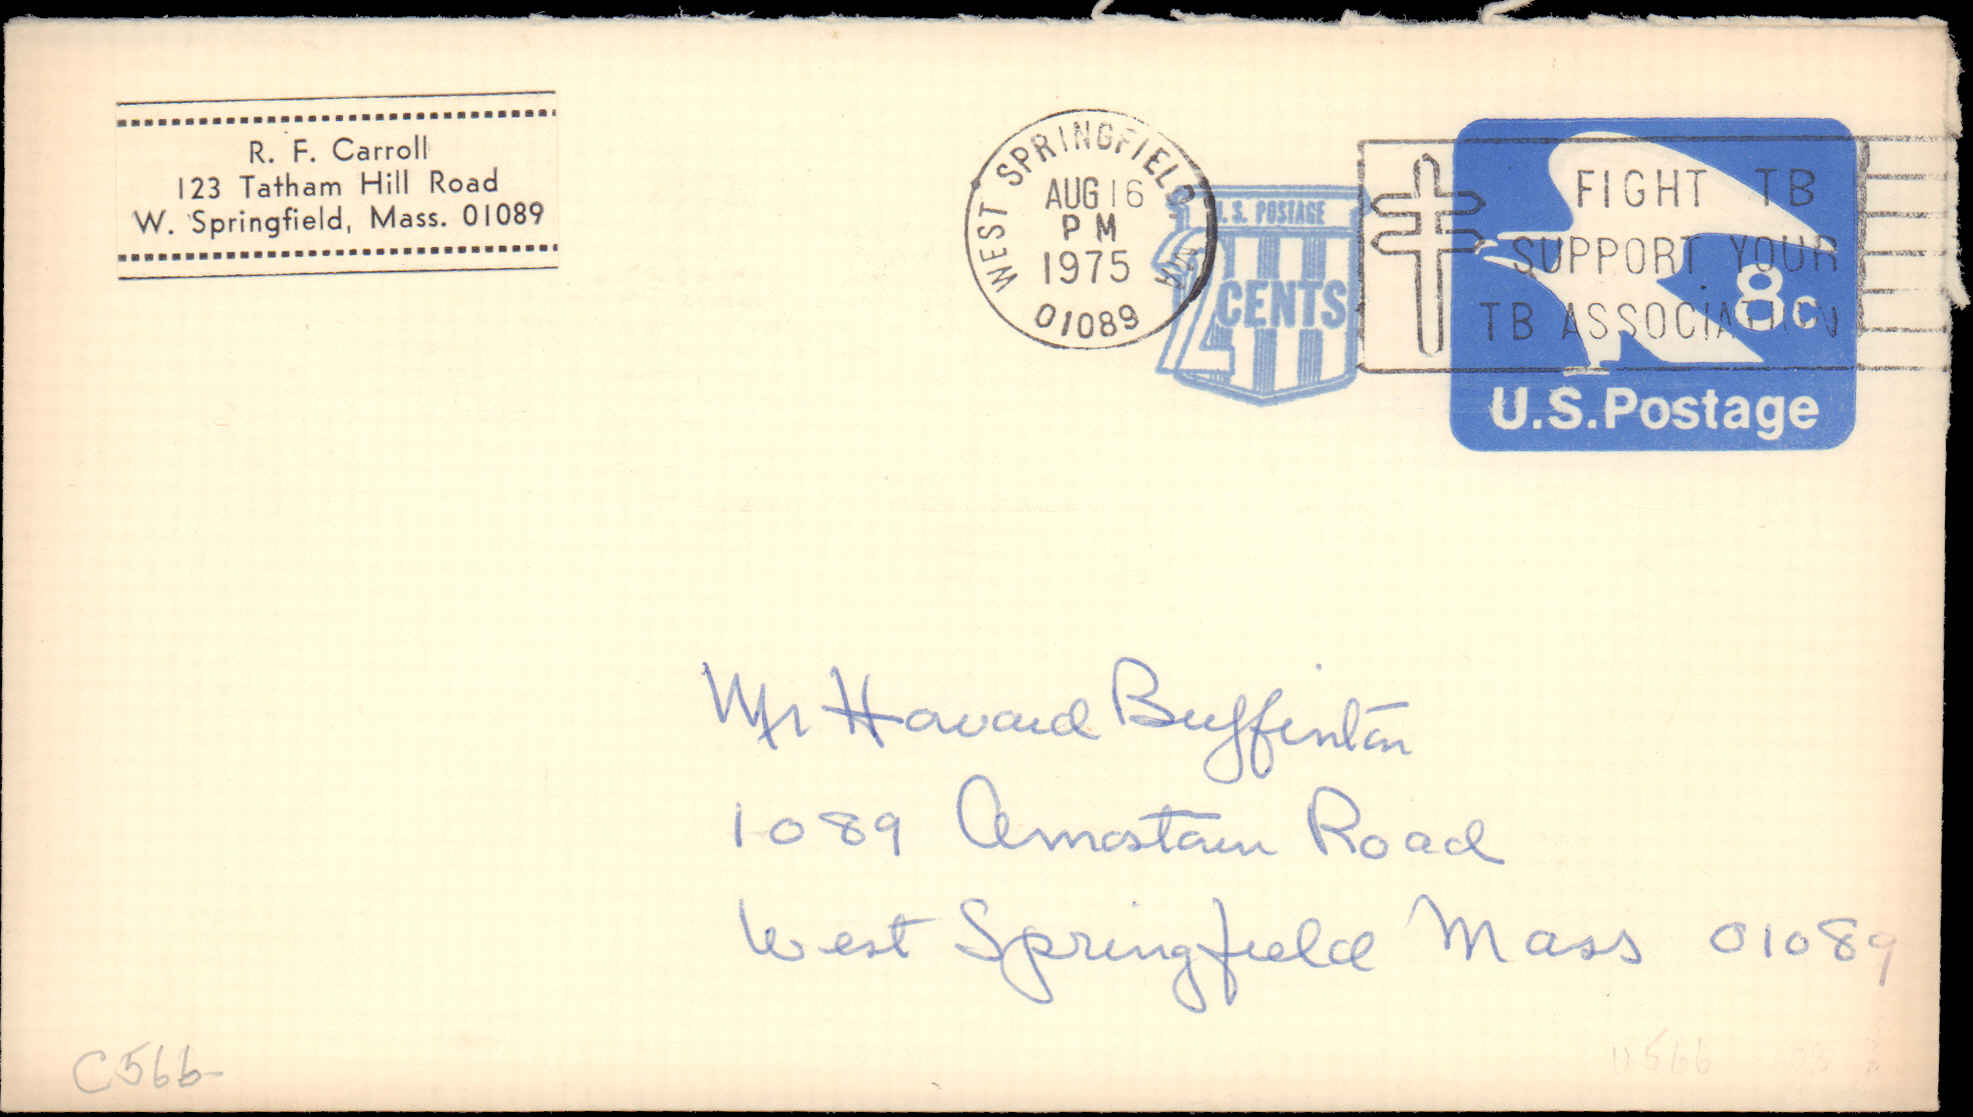 R. F. Carroll
123 Tatham Hill Road
W. Springfield, Mass. 01089
WEST SPRINGFIELD MA
AUG 16
PM
1975
01089
U.S. POSTAGE
2 CENTS
FIGHT TB
SUPPORT YOUR
TB ASSOCIATION
8c
U.S. Postage
Mr Howard Buffinton
1089 Amostown Road
West Springfield Mass 01089
C566
U566